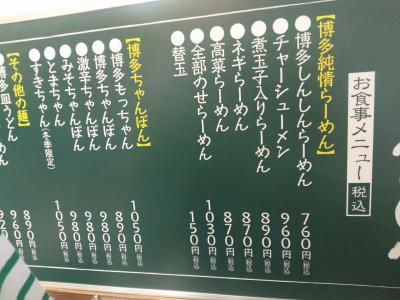 お食事メニュー 税込
【博多純情らーめん】
●博多しんしんらーめん 760円(税込)
●チャーシューメン 960円(税込)
●煮玉子入りらーめん 890円(税込)
●ネギらーめん 870円(税込)
●高菜らーめん 870円(税込)
●全部のせらーめん 1030円(税込)
●替玉 150円(税込)
【博多ちゃんぽん】
●博多もっちゃん 1050円(税込)
●博多ちゃんぽん 890円(税込)
●激辛ちゃんぽん 980円(税込)
●みそちゃんぽん 980円(税込)
●とまちゃん 980円(税込)
●すきちゃん(冬季限定) 1050円(税込)
【その他の麺】
●博多皿うどん 890円(税込)
960円
920